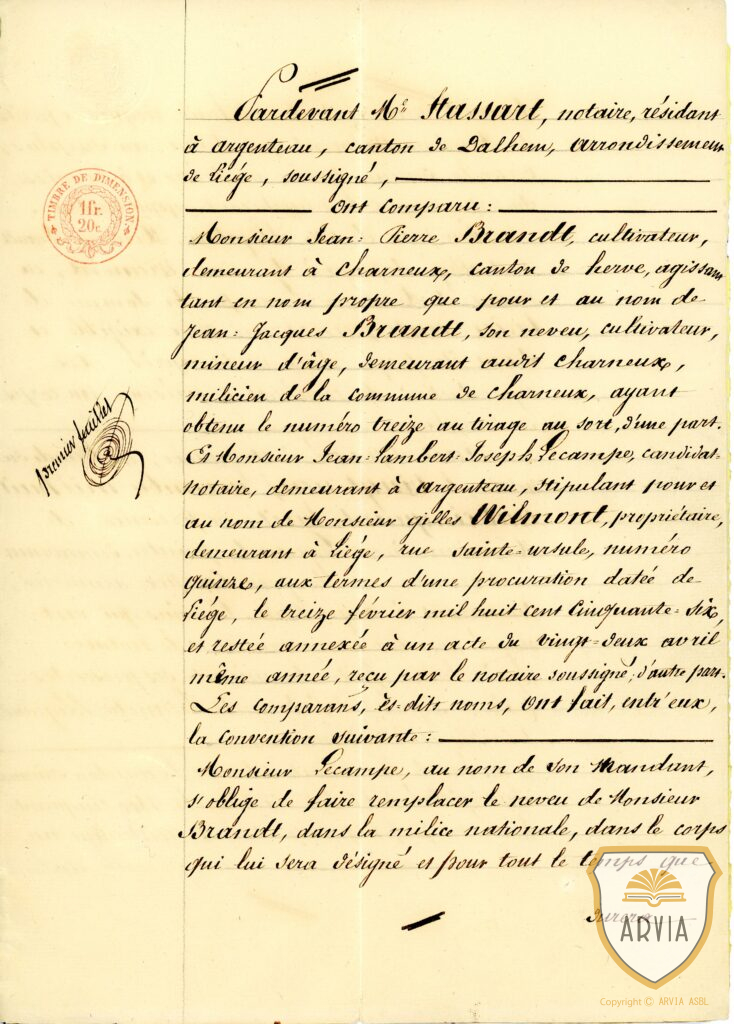 Pardevant Me Stassart, notaire, résidant
à argenteau, canton de Dalhem, arrondissement
de Liége, soussigné,
ont comparu :
Monsieur Jean-Pierre Brandt, cultivateur,
demeurant à Charneux, canton de herve, agissant
tant en nom propre que pour et au nom de
Jean-Jacques Brandt, son neveu, cultivateur,
mineur d'âge, demeurant audit Charneux,
milicien de la commune de Charneux, ayant
obtenu le numéro treize au tirage au sort, d'une part.
Et Monsieur Jean-Lambert-Joseph Lecampe, candidat-
notaire, demeurant à argenteau, stipulant pour et
au nom de Monsieur gilles Wilmont, propriétaire,
demeurant à Liége, rue Sainte-ursule, numéro
quinze, aux termes d'une procuration datée de
Liége, le treize février mil huit cent cinquante-six,
et restée annexée à un acte du vingt-deux avril
même année, reçu par le notaire soussigné, d'autre part.
Les comparans, ès-dits noms, ont fait, entr'eux,
la convention suivante :
Monsieur Lecampe, au nom de son mandant,
s'oblige de faire remplacer le neveu de Monsieur
Brandt, dans la milice nationale, dans le corps
qui lui sera désigné et pour tout le temps que
durera
TIMBRE DE DIMENSION
1fr.
20c.
premier feuillet
ARVIA
Copyright © ARVIA ASBL